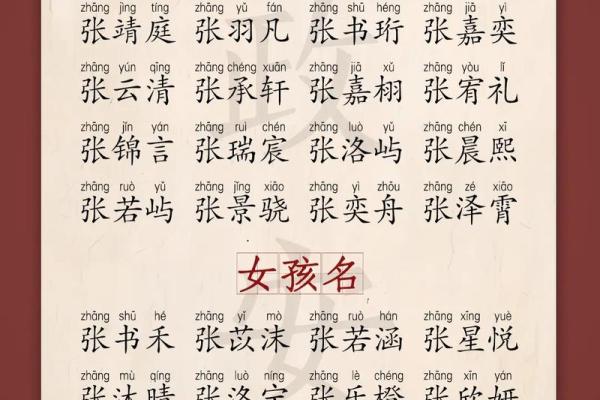 zhāng jìng tíng zhāng yǔ fán zhāng shū héng zhāng jiā yì
张靖庭 张羽凡 张书珩 张嘉奕
zhāng yún qīng zhāng chéng xuān zhāng jiā xǔ zhāng yòu lǐ
张云清 张承轩 张嘉栩 张宥礼
zhāng jǐn yán zhāng ruì chén zhāng luò yǔ zhāng chén xī
张锦言 张瑞宸 张洛屿 张晨熙
zhāng ruò yǔ zhāng jǐng xiāo zhāng yì zhōu zhāng zé xiāo
张若屿 张景骁 张奕舟 张泽霄
女孩名
zhāng shū hé zhāng yǐ mò zhāng ruò hán zhāng xīng yuè
张书禾 张苡沫 张若涵 张星悦
zhāng mù qíng zhāng luò níng zhāng lè chéng zhāng xīn yán
张沐晴 张洛宁 张乐橙 张欣妍